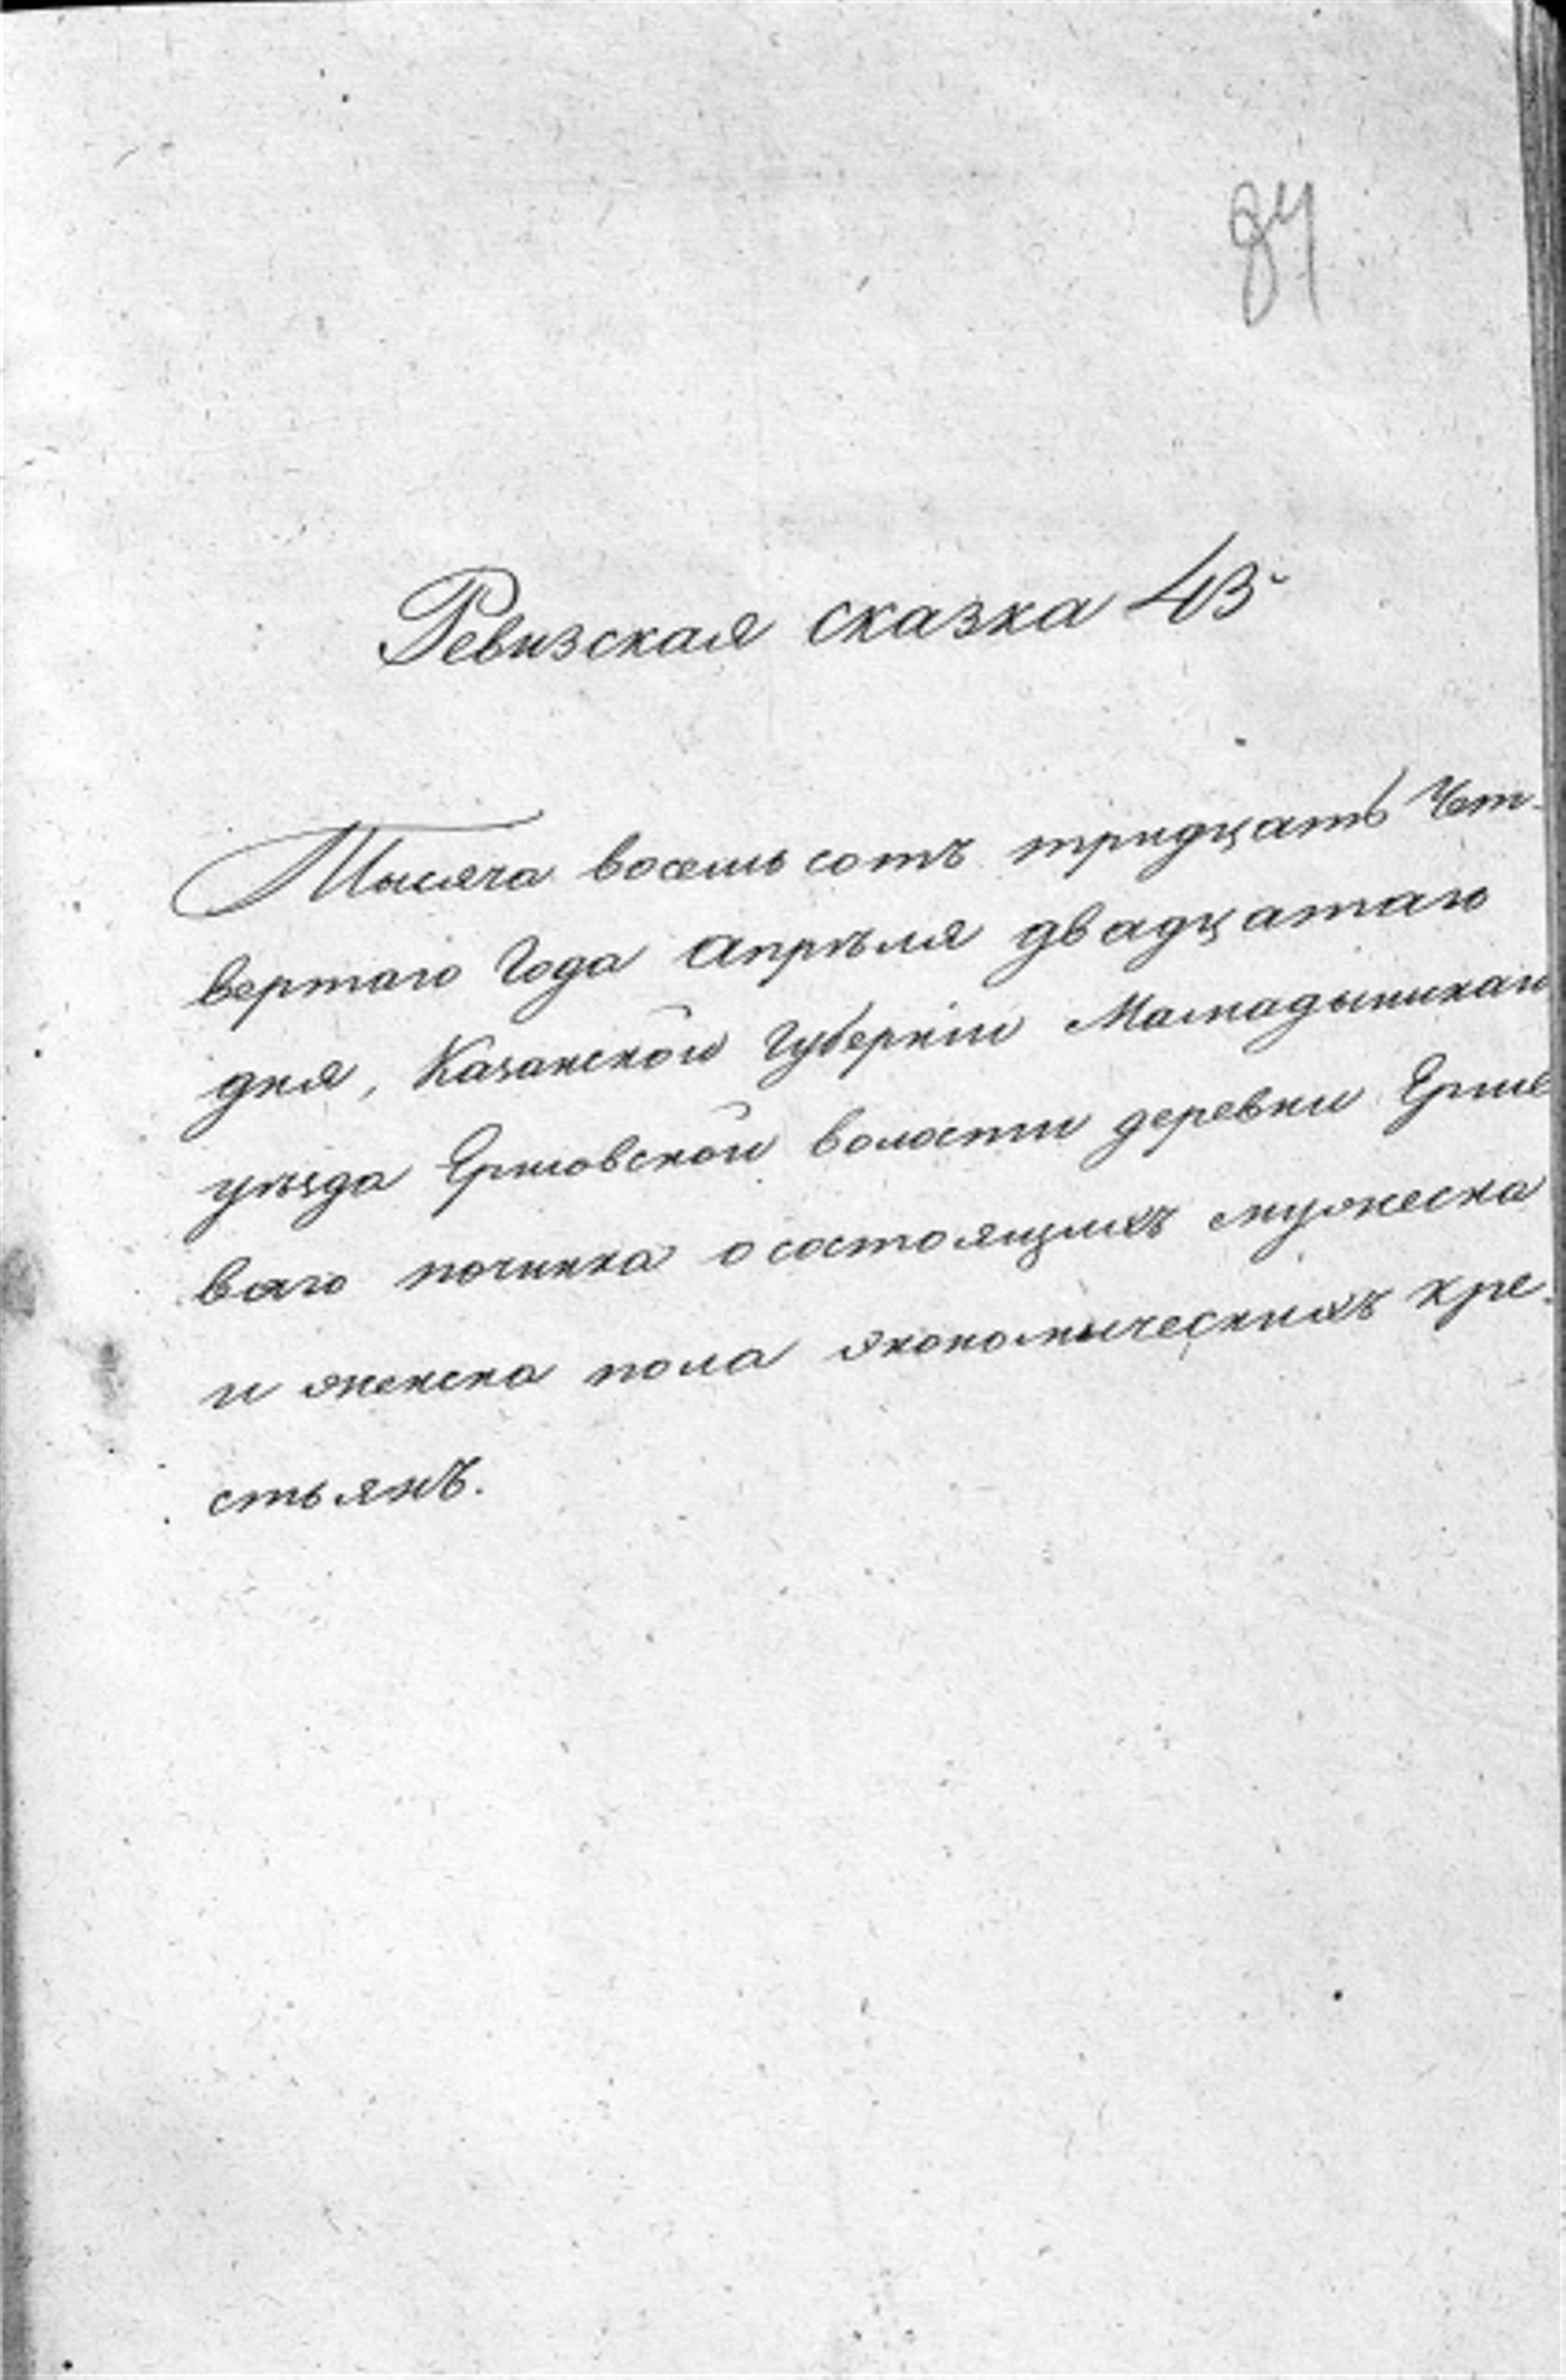 84
Ревизская сказка 43
Тысяча восемь сотъ тридцать Чет-
вертаго Года Апрѣля двадцатаго
дня, Казанской Губерніи Мамадышскаго
уѣзда Ершовской волости деревни Ерше
ваго починка о состоящихъ мужеска
и женска пола экономыческихъ кре-
стьянъ.